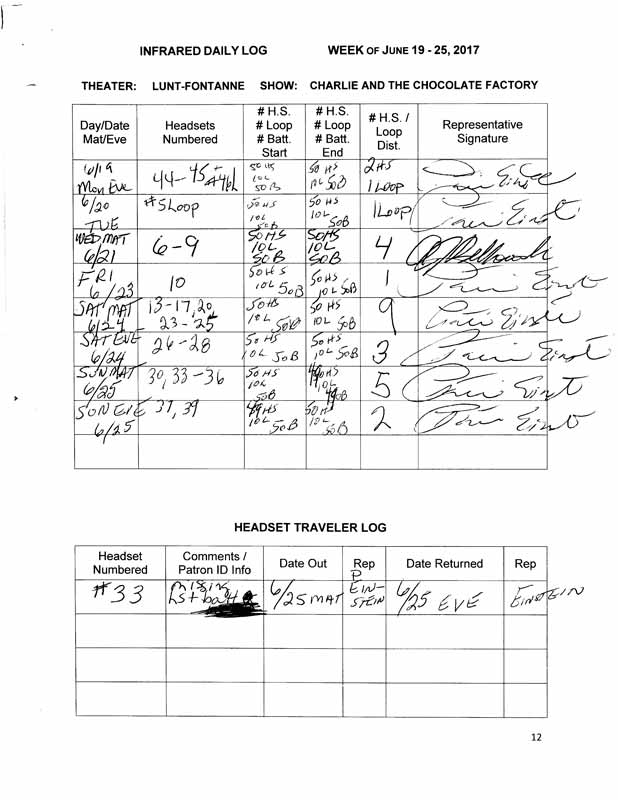 INFRARED DAILY LOG WEEK OF JUNE 19 - 25, 2017
THEATER: LUNT-FONTANNE SHOW: CHARLIE AND THE CHOCOLATE FACTORY
Day/Date
Mat/Eve
Headsets
Numbered
# H.S.
# Loop
# Batt.
Start
# H.S.
# Loop
# Batt.
End
# H.S. /
Loop
Dist.
Representative
Signature
6/19
Mon Eve
44-45+
50 HS
10L
50 B
50 HS
10L 50B
2HS
1 LOOP
6/20
TUE
#5Loop
50HS
10L
50B
50 HS
10L
50B
1Loop
WED MAT
6/21
6-9
50HS
10L
50B
50HS
10L
50B
4
FRI
6/23
10
50HS
10L 50B
50HS
10L 50B
1
SAT MAT
6/24
13-17,20
23-25
50HS
10L
50B
50 HS
10L 50B
9
SAT EVE
6/24
26-28
50HS
10L 50B
50HS
10L 50B
3
SUN MAT
6/25
30, 33-36
50HS
10L
50B
49HS
10L
49B
5
SUN EVE
6/25
37, 39
49HS
10L
50B
50H
10L
50B
2
HEADSET TRAVELER LOG
Headset
Numbered
Comments /
Patron ID Info
Date Out
Rep
Date Returned
Rep
#33
missing
hst + batt
6/25 MAT
P
EIN-
STEIN
6/25 EVE
EINSTEIN
12